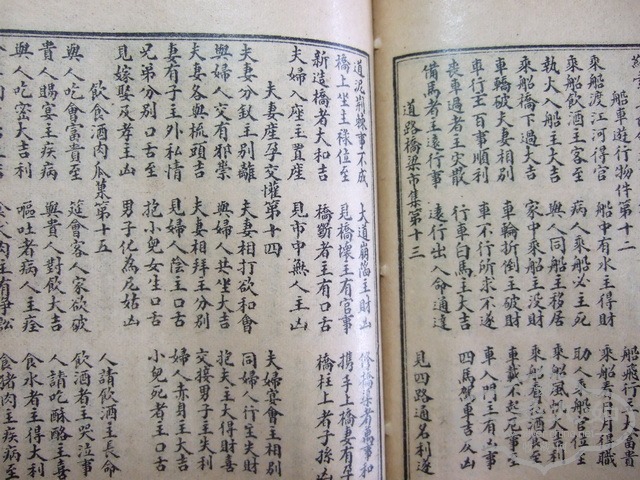 船飛行主大富貴
船車遊行物件第十二
乘船渡江河得官 船中有水主得財 乘船看日月得職
執火入船主大吉 病人乘船必主死 助人乘船官位至
乘船飲酒主客至 與人同船主移居 乘船風帆大吉利
乘船橋下過大吉 家中乘船主没財 乘船看花酒食至
車轎破夫妻相別 車輪折倒主破財 車載不起凡事至
車行主百事順利 車不行所求不遂 車入門主有凶事
喪車過者主灾散 行車白馬主大吉 四馬駕車吉反凶
備馬者主遠行事 遠行出入命通達
道路橋梁市集第十三 見四路通名利遂
道泥荆棘事不成 大道崩陷主財凶 修橋梁者萬事和
橋上坐主祿位至 見橋壞主有官事 携手上橋妻有孕
新造橋者大和吉 橋斷者主有口舌 橋柱上者子孫凶
夫婦入座主置座 見市中無人主凶
夫妻產孕交懽第十四 夫妻宴會主相別
夫妻分釵主別離 夫妻相打欲和會 同婦人行主失財
與婦人交有邪祟 與婦人共坐大吉 抱夫主大得財喜
夫妻各與梳頭吉 夫妻相拜主分別 交接男子主失利
妻有子主外私情 見婦人陰主口舌 婦人赤身主大吉
兄弟分別口舌至 抱小兒女生口舌 小兒死者主口舌
見嫁娶及孝主凶 男子化為尼姑凶
飲食酒肉瓜菓第十五 人請飲酒主長命
與人吃會富貴至 筵會客人家欲破 飲酒者主哭泣事
貴人賜宴主疾病 與貴人對飲大吉 人請吃酥酪主喜
與人吃蜜大吉利 嘔吐者病人主痊 食水者主得大利
食人肉主有爭訟 食猪肉主疾病至